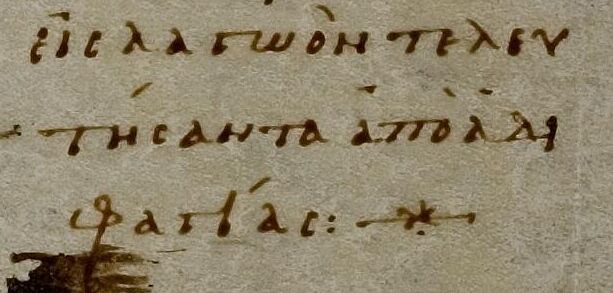 εἰς λαγωὸν τελευ
τήσαντα ἀπὸ ἀδη
φαγίας: –※–